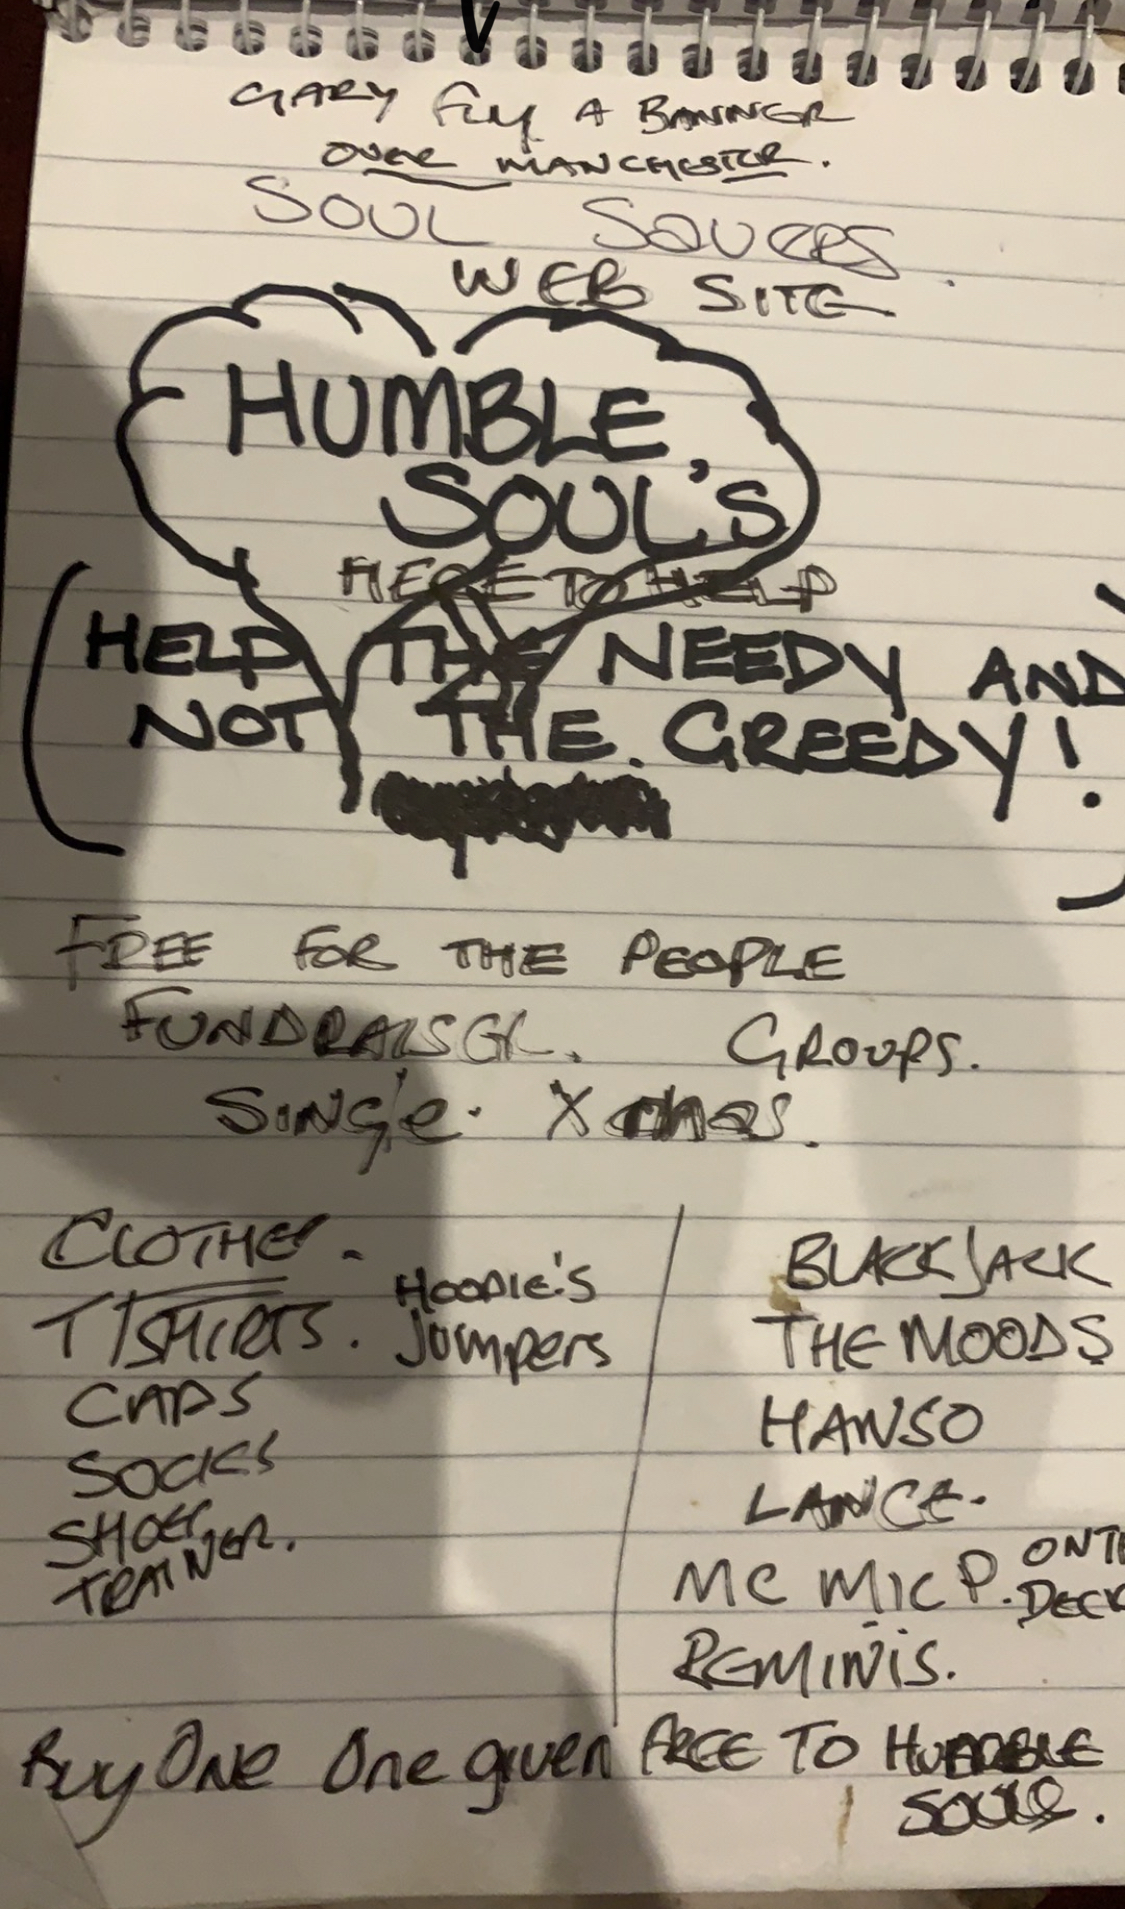 GARY Fly A BANNER
OVER MANCHESTER.
SOUL SAVERS
WEB SITE
HUMBLE
SOUL'S
HERE TO HELP
(HELP THE NEEDY AND
NOT THE. GREEDY!)
FREE FOR THE PEOPLE
FUNDRAISER. GROUPS.
SINGLE. Xmas.
CLOTHES.
T/SHIRTS. HOODIE'S
Jumpers
CAPS
SOCKS
SHOES
TRAINER.
BLACKJACK
THE MOODS
HANSO
LANCE.
MC MIC P. ONTH
DECK
REMINIS.
Buy ONE One given FREE TO HUMBLE
SOULS.